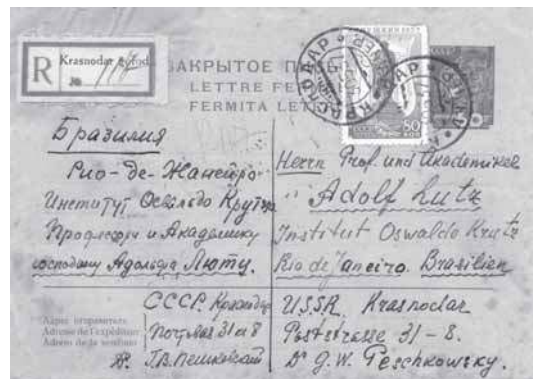 R Krasnodar gorod
№ 117
ЗАКРЫТОЕ
LETTRE
FERMITA
КРАСНОДАР
80
КОП
Бразилия
Рио-де-Жанейро
Институт Освальдо Крутца
Профессору и Академику
господину Адольфу Лютц.
Herrn Prof. und Akademiker
Adolf Lutz
Institut Oswaldo Krutz
Rio de Janeiro. Brasilien
СССР. Краснодар
Адрес отправителя
Adresse de l'expéditeur
Adreso de la sendinto
31 8
Г.В. Пешковский
U.S.S.R. Krasnodar
Poststrasse 31-8.
Dr G. W. Peschkowsky.